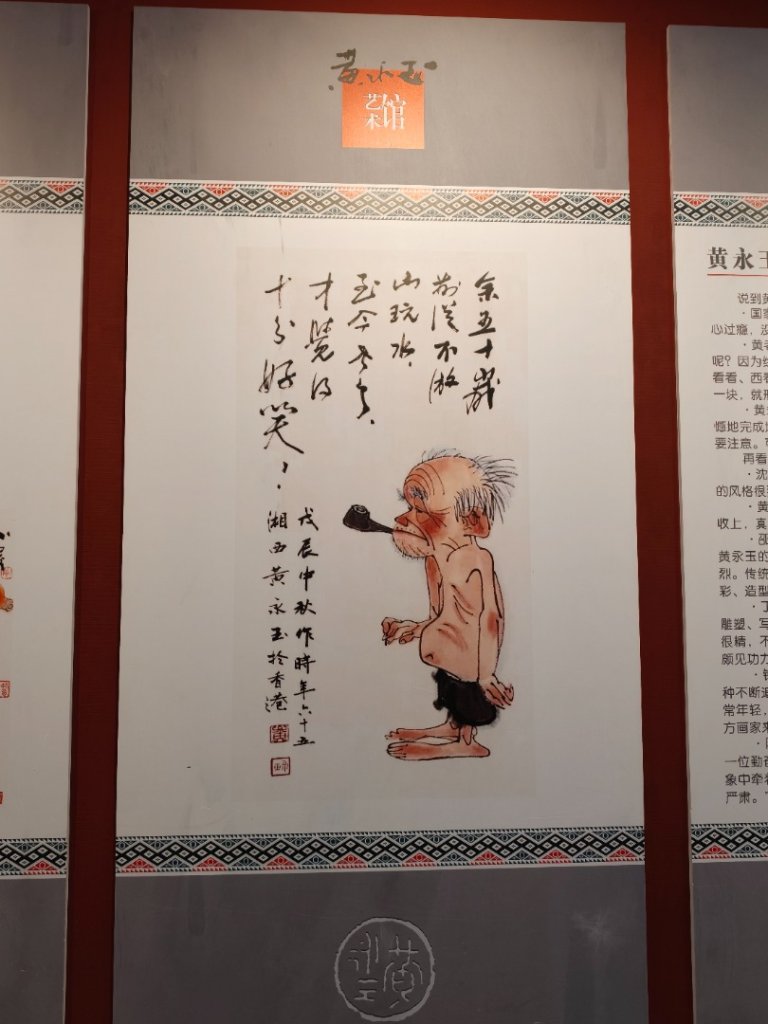 黄永玉
艺术馆
余五十歲
前從不游
山玩水，
至今老了、
才覺得
十分好笑！
戊辰中秋作時年六十五
湘西黄永玉於香港
黄永玉
黄永
说到
·国
心过瘾，
·黄
呢？因为
看看、西
一块，就
·黄
憾地完成
要注意。
再看
·沈
的风格很
·黄
收上，真
·邵
黄永玉的
烈。传统
彩、造型
·丁
雕塑、写
很精，不
颇见功力
种不断追
常年轻，
方画家来
一位勤
象中牵
严肃。